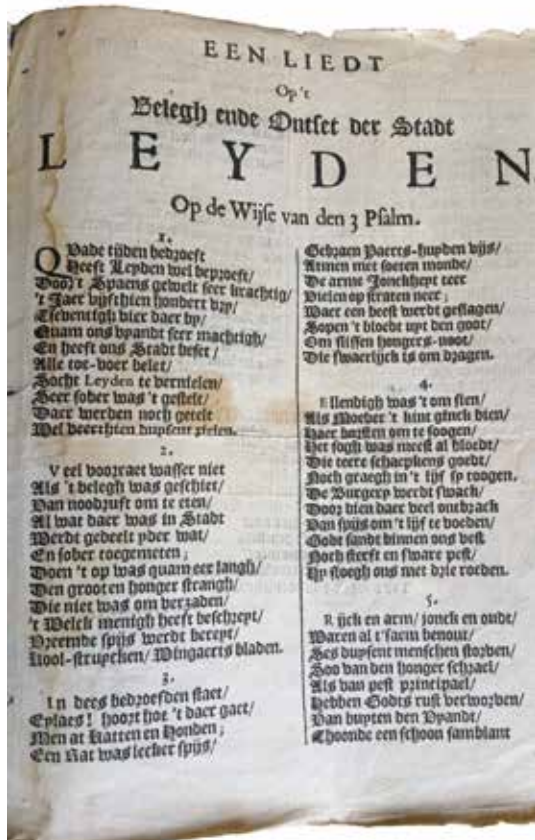 EEN LIEDT
Op 't
Belegh ende Ontset der Stadt
LEYDEN
Op de Wijse van den 3 Psalm.
1.
QUade tijden bedroeft
Heeft Leyden wel beproeft/
Door't Spaens gewelt seer krachtig/
't Jaer vijfthien hondert dry/
Tseventigh vier daer by/
Quam ons vyandt seer machtigh/
En heeft ons Stadt beset/
Alle toe-voer belet/
Socht Leyden te vernielen/
Seer sober was 't gestelt/
Daer werden noch getelt
Wel veerthien duysent zielen.
2.
Veel voorraet wasser niet
Als 't belegh was geschiet/
Van noodruft om te eten/
Al wat daer was in Stadt
Werdt gedeelt yder wat/
En sober toegemeten;
Doen 't op was quam eer langh/
Den grooten honger strangh/
Die niet was om verzaden/
't Welck menigh heeft beschreyt/
Vreemde spijs werdt bereyt/
Kool-struycken/ Wingaerts bladen.
3.
In dees bedroefden staet/
Eylaes! hoort hoe 't daer gaet/
Men at Katten en Honden;
Een Rat was lecker spijs/
Gebraen Paerts-huyden vijs/
Atmen met soeten monde/
De arme Jonckheyt teer
Vielen op straten neer;
Waer een beest werdt geslagen/
Sopen 't bloedt uyt den goot/
Om slissen hongers-noot/
Die swaerlijck is om dragen.
4.
Ellendigh was 't om sien/
Als Moeder 't kint ginck bien/
Haer borsten om te soogen/
Het sogh was meest al bloedt/
Die teere schaepkens goedt/
Noch graegh in't lijf sy toogen.
De Burgery werdt swack/
Door dien daer veel ontbrack
Van spijs om 't lijf te voeden/
Godt sandt binnen ons vest
Noch sterft en sware pest/
Hy sloegh ons met drie roeden.
5.
Rijck en arm/ jonck en oudt/
Waren al t'saem benout/
Ses duysent menschen storven/
Soo van den honger schrael/
Als van pest principael/
Hebben Godts rust verworven/
Van buyten den Vyandt/
Thoonde een schoon samblant